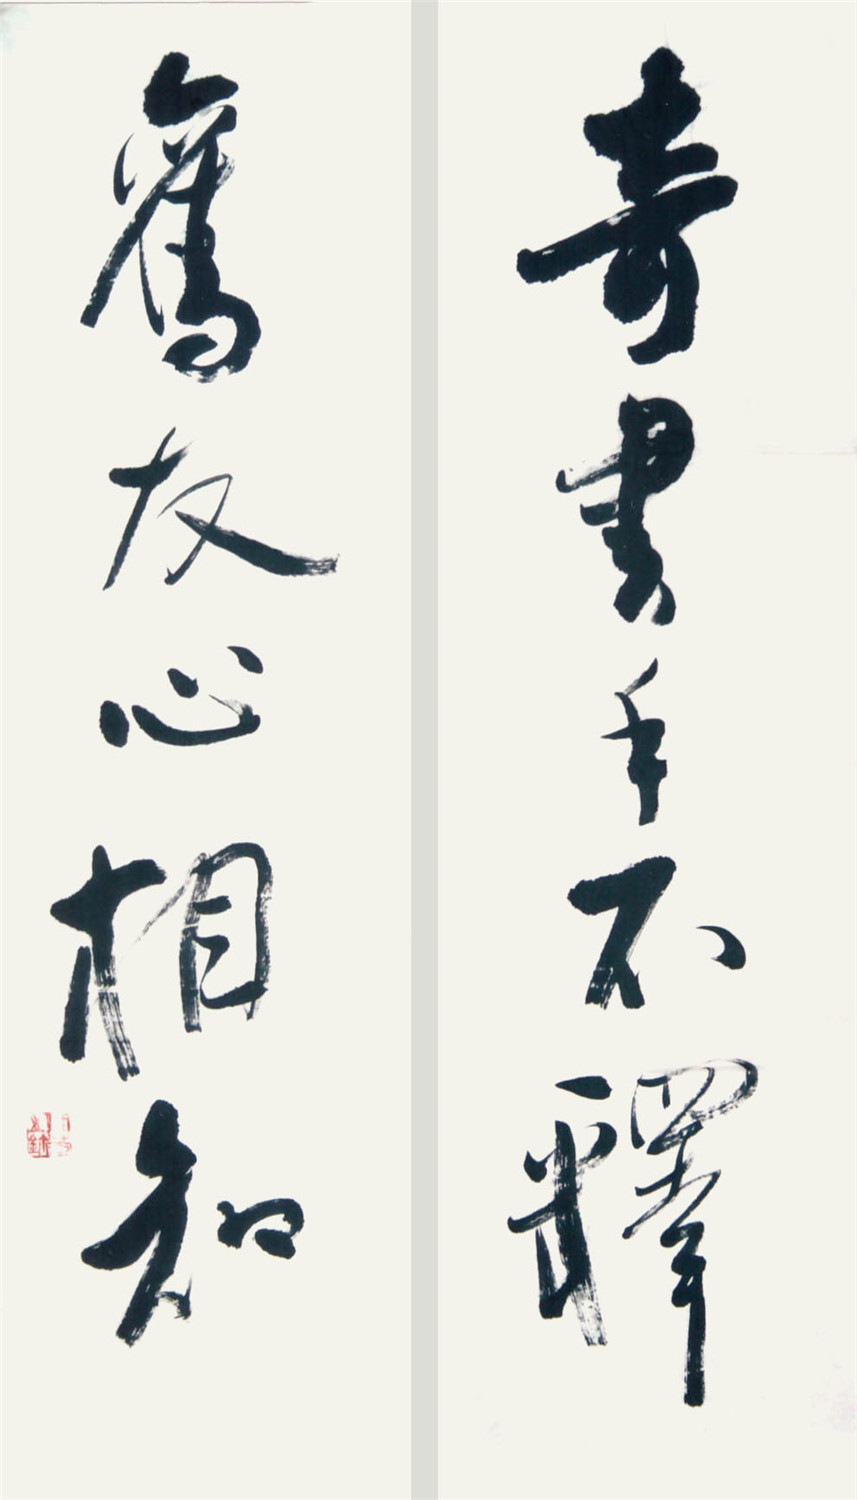 奇書手不釋
舊友心相知